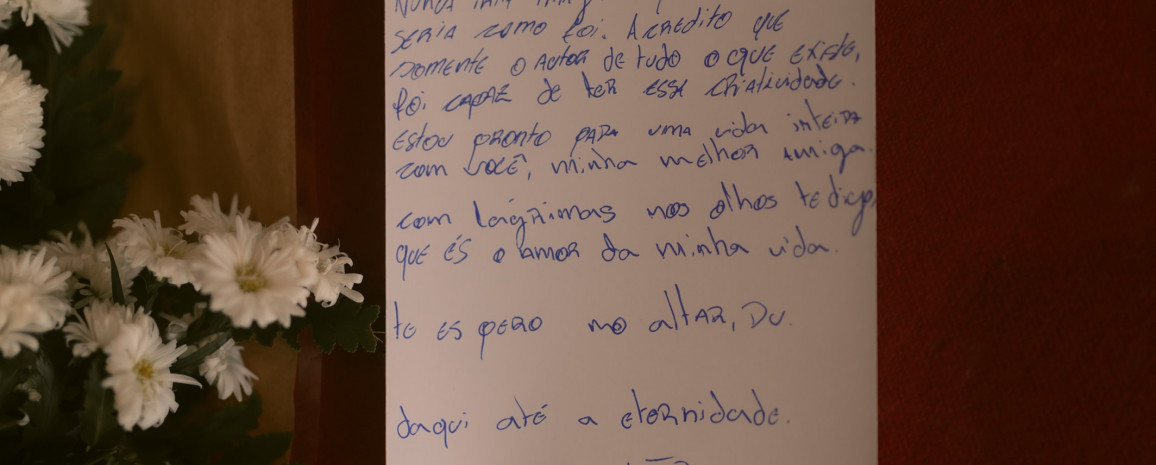 seria como foi. Acredito que
somente o autor de tudo o que existe,
foi capaz de ter essa criatividade.
Estou pronto para uma vida inteira
com você, minha melhor amiga.
com lágrimas nos olhos te digo,
que és o amor da minha vida.
te espero no altar, Du.
daqui até a eternidade.